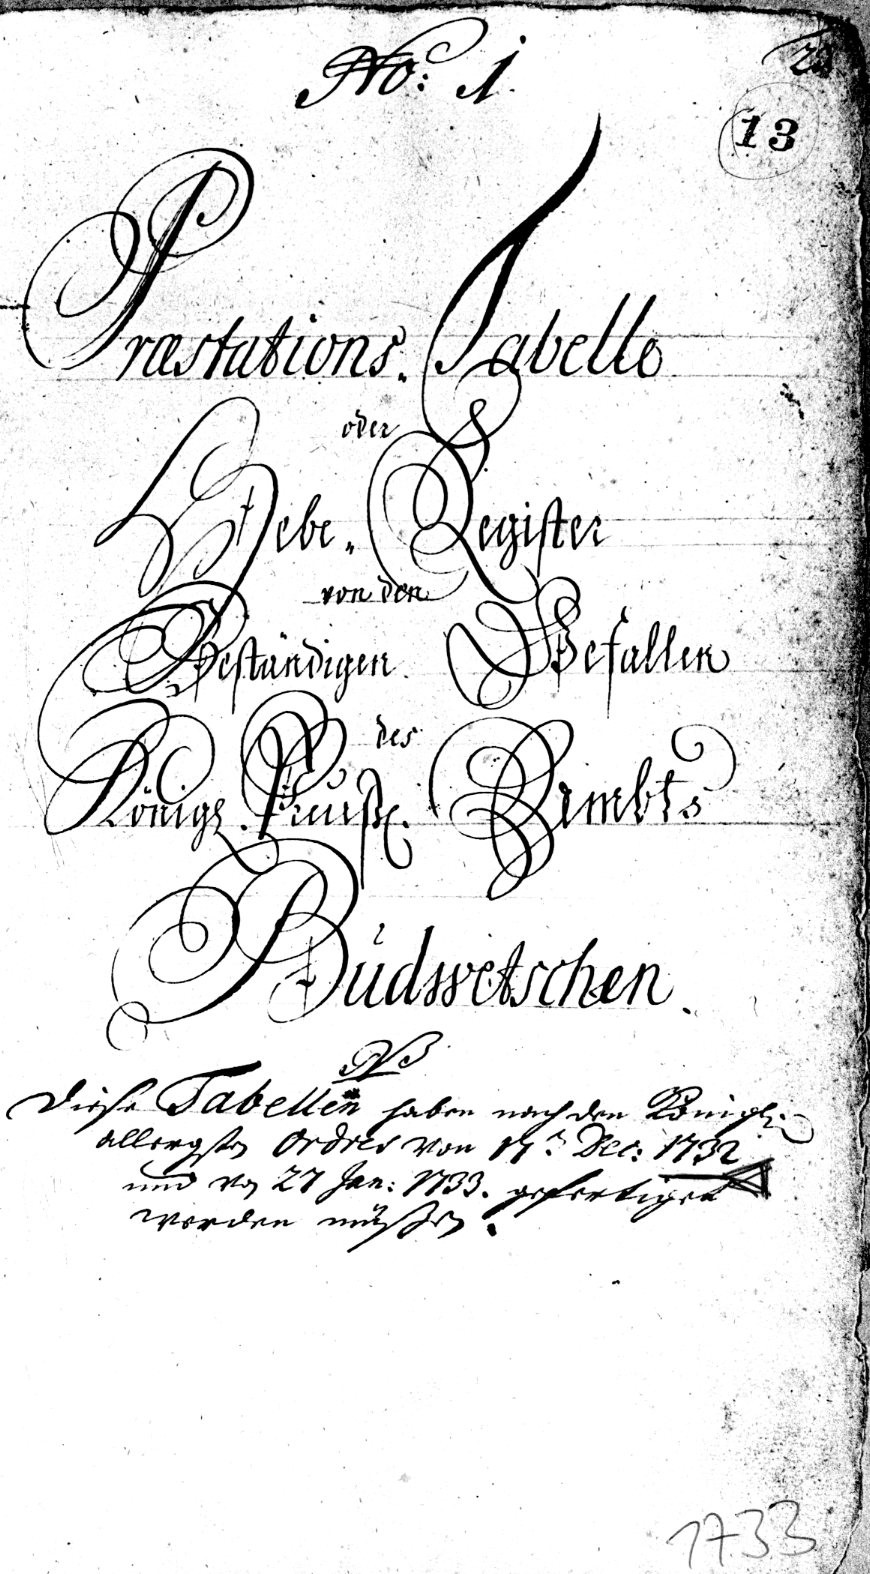 No: 1.
13
Præstations-Tabelle
oder
Hebe-Register
von den
Beständigen Gefällen
des
Königl. Preuß. Ambts
Budwetschen.
NB
Diese Tabellen haben nach den Königl:
allergsten Ordres von 17t Dec: 1732
und von 27 Jan: 1733. gefertiget
werden müßen.
1733